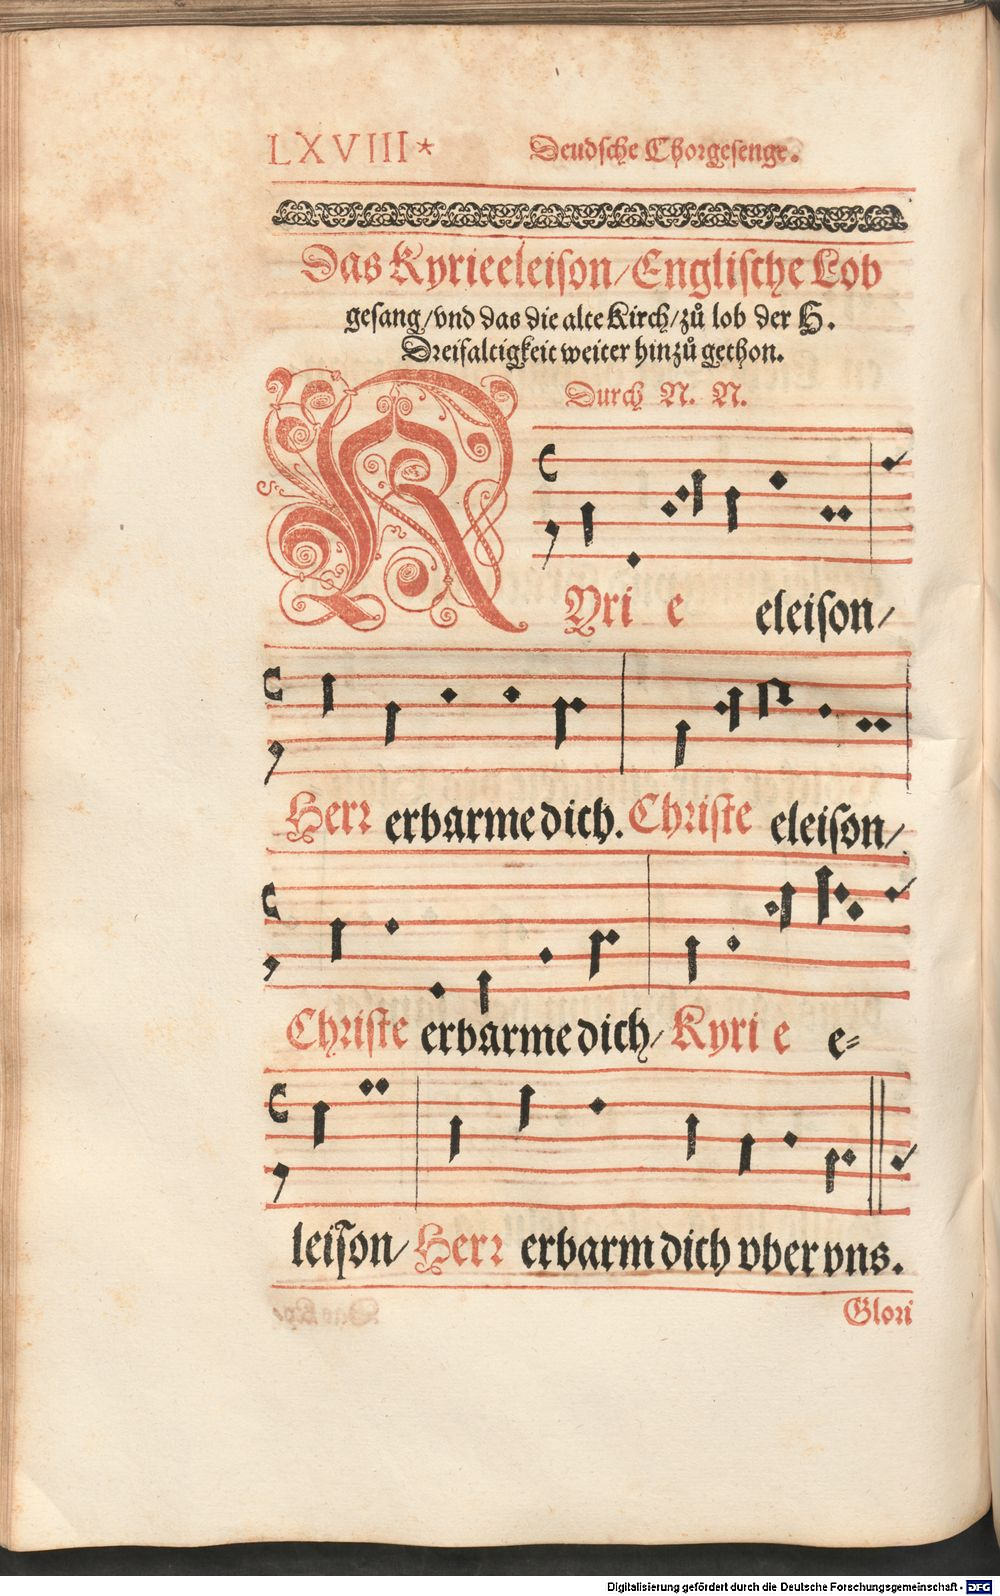 LXVIII* Deudsche Chorgesenge.
Das Kyrieeleison/Englische Lob
gesang/vnd das die alte Kirch/zů lob der H.
Dreifaltigkeit weiter hinzů gethon.
Durch N. N.
KYri e eleison/
Herr erbarme dich. Christe eleison/
Christe erbarme dich/ Kyri e e=
leison/ Herr erbarm dich vber vns.
Glori
Digitalisierung gefördert durch die Deutsche Forschungsgemeinschaft - DFG